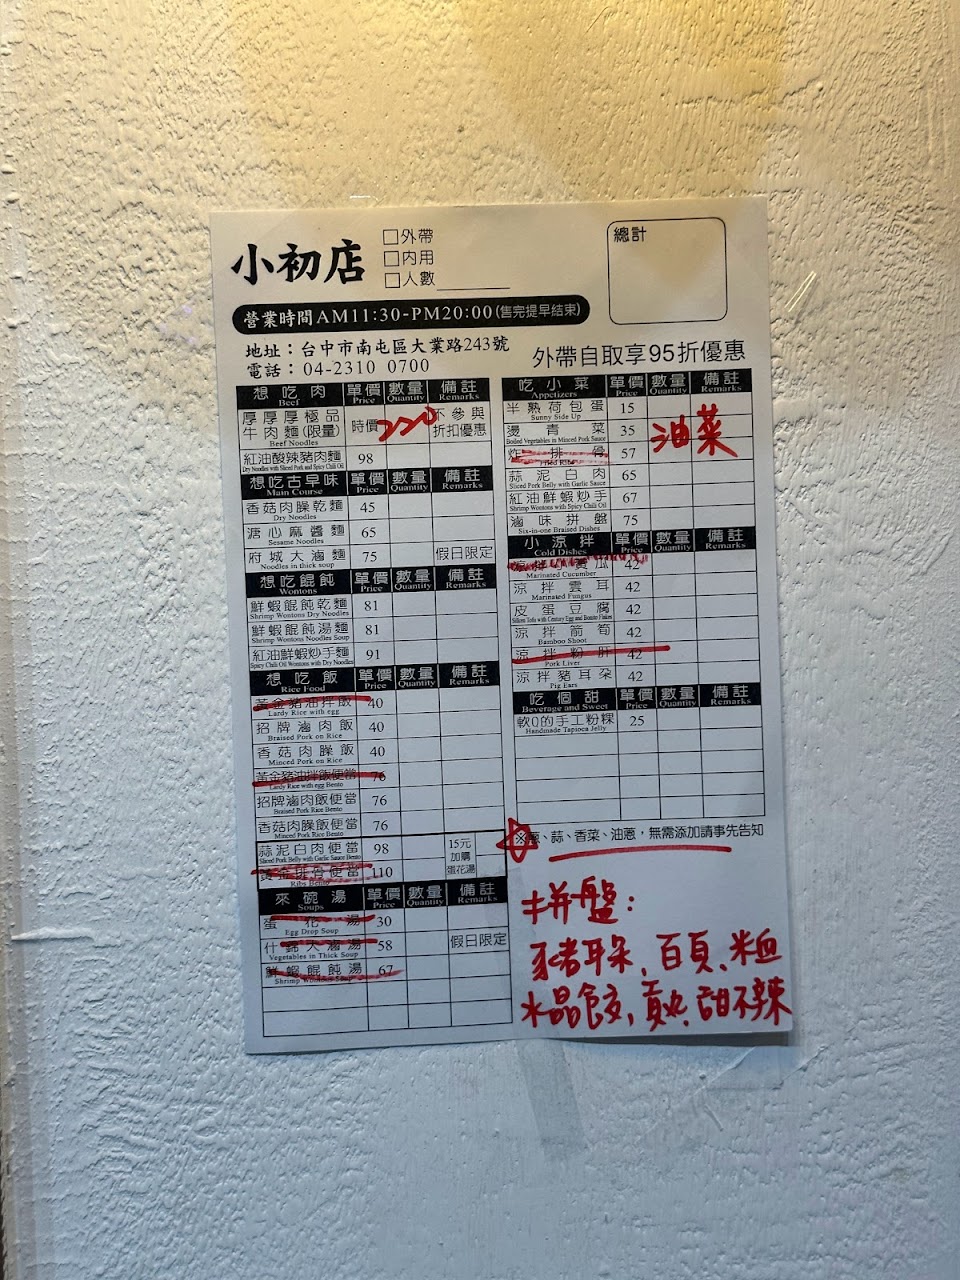 小初店
□外帶
□內用
□人數
總計
營業時間AM11:30-PM20:00(售完提早結束)
地址：台中市南屯區大業路243號
電話：04-2310 0700
外帶自取享95折優惠
想吃肉 Beef 單價 Price 數量 Quantity 備註 Remarks
厚厚厚極品牛肉麵(限量) Beef Noodles 時價 220 不參與折扣優惠
紅油酸辣豬肉麵 Dry Noodles with Sliced Pork and Spicy Chili Oil 98
想吃古早味 Main Course 單價 Price 數量 Quantity 備註 Remarks
香菇肉臊乾麵 Dry Noodles 45
溏心麻醬麵 Sesame Noodles 65
府城大滷麵 Noodles in thick soup 75 假日限定
想吃餛飩 Wontons 單價 Price 數量 Quantity 備註 Remarks
鮮蝦餛飩乾麵 Shrimp Wontons Dry Noodles 81
鮮蝦餛飩湯麵 Shrimp Wontons Noodles Soup 81
紅油鮮蝦抄手麵 Spicy Chili Oil Wontons with Dry Noodles 91
想吃飯 Rice Food 單價 Price 數量 Quantity 備註 Remarks
黃金豬油拌飯 Lardy Rice with egg 40
招牌滷肉飯 Braised Pork on Rice 40
香菇肉臊飯 Minced Pork on Rice 40
黃金豬油拌飯便當 Lardy Rice with egg Bento 76
招牌滷肉飯便當 Braised Pork Rice Bento 76
香菇肉臊飯便當 Minced Pork Rice Bento 76
蒜泥白肉便當 Sliced Pork Belly with Garlic Sauce Bento 98 15元加購蛋花湯
黃金排骨便當 Ribs Bento 110
來碗湯 Soups 單價 Price 數量 Quantity 備註 Remarks
蛋花湯 Egg Drop Soup 30
什錦大滷湯 Vegetables in Thick Soup 58 假日限定
鮮蝦餛飩湯 Shrimp Wontons Soup 67
吃小菜 Appetizers 單價 Price 數量 Quantity 備註 Remarks
半熟荷包蛋 Sunny Side Up 15
燙青菜 Boiled Vegetables in Minced Pork Sauce 35 油菜
炸排骨 Fried Ribs 57
蒜泥白肉 Sliced Pork Belly with Garlic Sauce 65
紅油鮮蝦抄手 Shrimp Wontons with Spicy Chili Oil 67
滷味拼盤 Six-in-one Braised Dishes 75
小涼拌 Cold Dishes 單價 Price 數量 Quantity 備註 Remarks
涼拌黃瓜 Marinated Cucumber 42
涼拌雲耳 Marinated Fungus 42
皮蛋豆腐 42
涼拌箭筍 Bamboo Shoot 42
涼拌粉肝 Pork Liver 42
涼拌豬耳朵 Pig Ears 42
吃個甜 Beverage and Sweet 單價 Price 數量 Quantity 備註 Remarks
軟Q的手工粉粿 Handmade Tapioca Jelly 25
※蔥、蒜、香菜、油蔥，無需添加請事先告知
拼盤：
豬耳朵、百頁、米血
水晶餃、黃丸、甜不辣